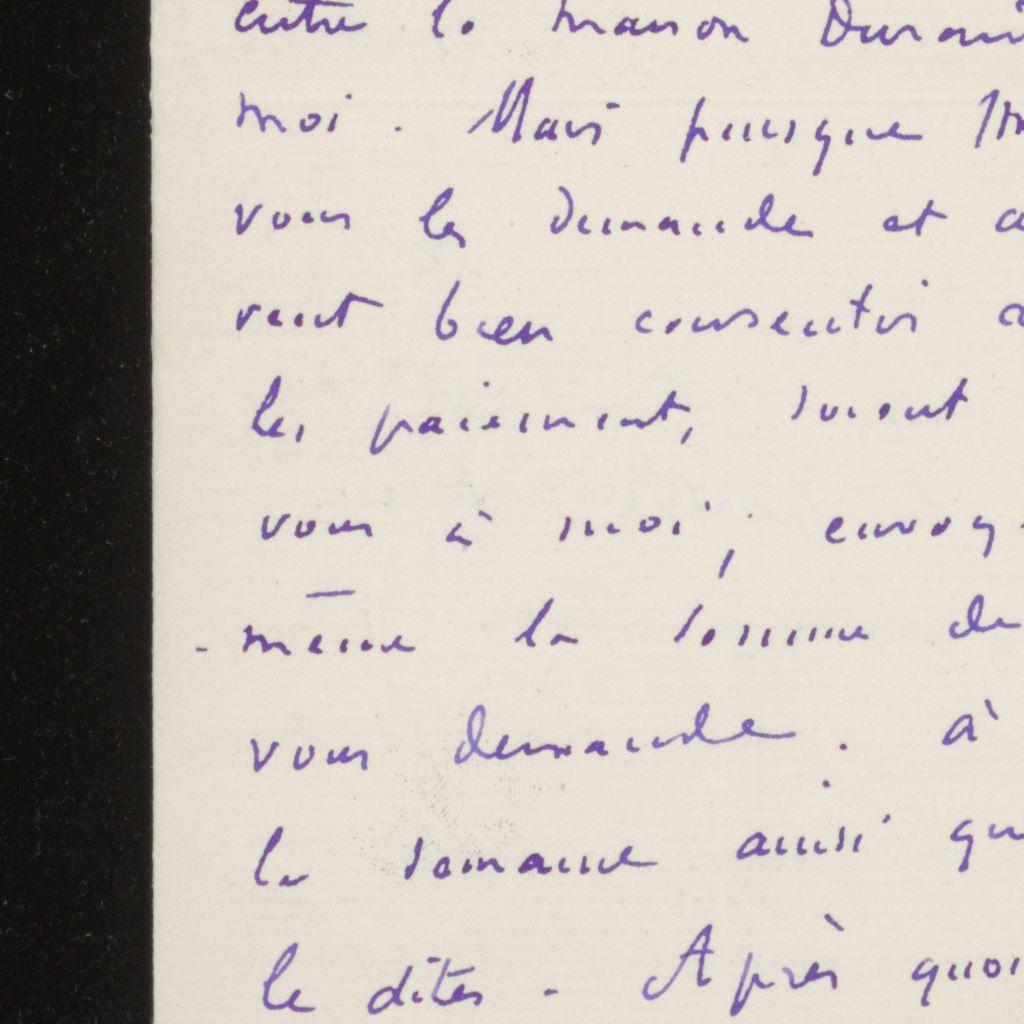 entre la maison Durand
moi. Mais puisque M
vous les demande et a
veut bien consentir a
les paiement, suivant
vous à moi, envoy
-même la somme de
vous demande. à
la semaine ainsi qu
le dites. Après quoi